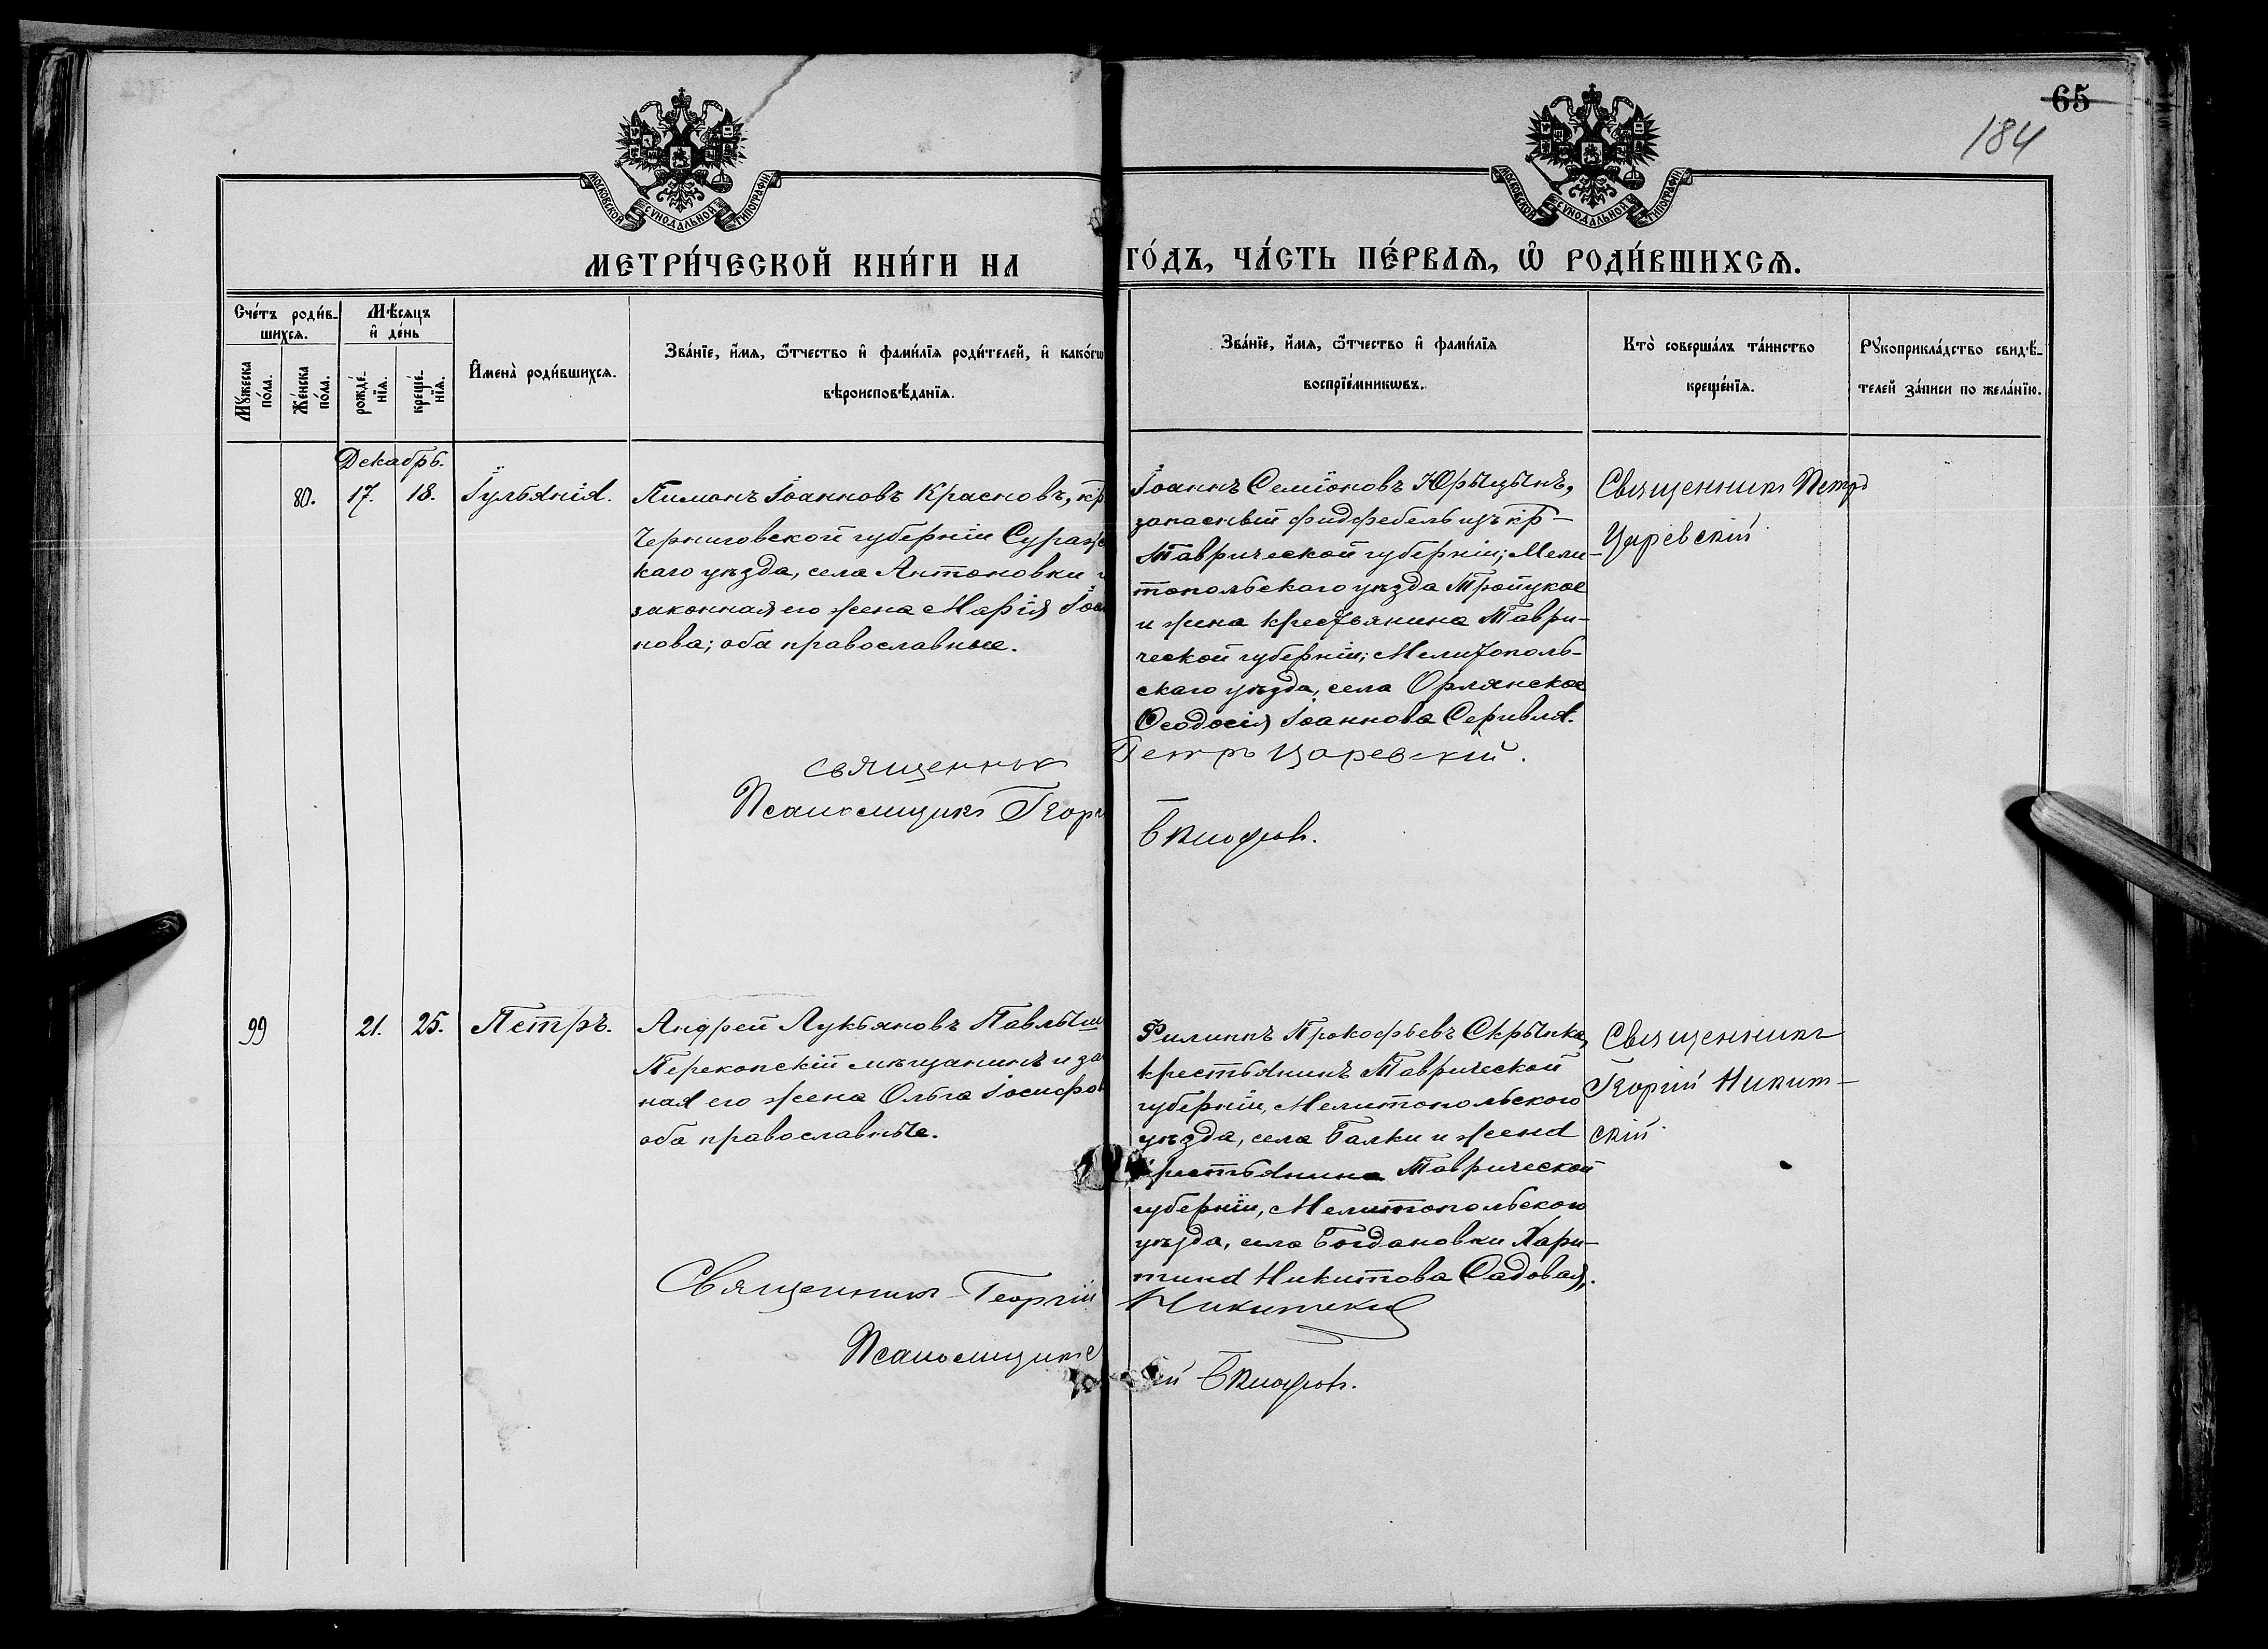 65
184
МОСКОВСКОЙ СѴНОДАЛЬНОЙ ТИПОГРАФІИ
МОСКОВСКОЙ СѴНОДАЛЬНОЙ ТИПОГРАФІИ
МЕТРИ́ЧЕСКОЙ КНИ́ГИ НА
ГО́ДЪ, ЧА́СТЬ ПЕ́РВАѦ, Ѡ҆ РОДИ́ВШИХСѦ.
Сче́тъ роди́в-
шихсѧ.
Мѣ́сѧцъ
и҆ де́нь
Мꙋ́жеска
по́ла.
Же́нска
по́ла.
рожде́-
нїѧ.
креще́-
нїѧ.
И҆мена̀ роди́вшихсѧ.
Зва́нїе, и҆́мѧ, ѻ҆́тчество и҆ фами́лїѧ роди́телей, и҆ како́гѡ
вѣроисповѣ́данїѧ.
Зва́нїе, и҆́мѧ, ѻ҆́тчество и҆ фами́лїѧ
воспрїе́мникѡвъ.
Кто̀ соверша́лъ та́инство
креще́нїѧ.
Рꙋкоприкла́дство свидѣ́-
телей за́писи по жела́нїю.
Декабрь.
80.
17.
18.
Іульянія.
Пимонъ Іоанновъ Красновъ, кр
Черниговской губерніи Сураж
каго уѣзда, села Антоновки и
законная его жена Марія Іоа
нова; оба православные.
Іоаннъ Семіоновъ Юрыцынъ,
запасный фидфебель изъ кр-
Таврической губерніи; Мели-
топольскаго уѣзда Тройцкое
и жена крестьянина Таври-
ческой губерніи; Мелитополь-
скаго уѣзда, села Орлянское
Ѳеодосія Іоаннова
Священникъ Петръ
Царевскій
Священник
Петръ Царевскій.
Псаломщикъ Георг
99
21.
25.
Петръ.
Андрей Лукьяновъ Павлыш
Перекопскій мѣщанинъ и зак
ная его жена Ольга Іосифов
оба православные.
Филиппъ Прокофьевъ Скрыпка,
крестьянинъ Таврической
губерніи, Мелитопольскаго
уѣзда, села Балки и жена
крестьянина Таврической
губерніи, Мелитопольскаго
уѣзда, села Богдановки Хари-
тина Никитова Садовая.
Священникъ
Георгій Никит-
скій
Священникъ Георгій
Никитскій
Псаломщикъ